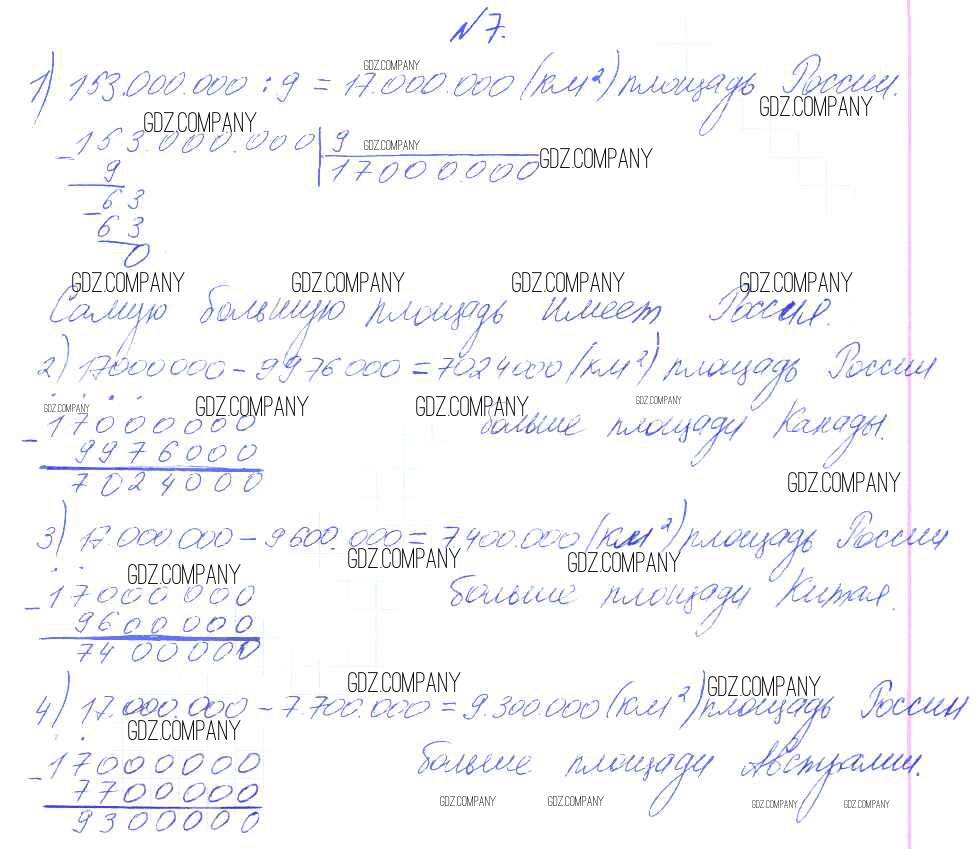 №7.
GDZ.COMPANY
1) 153.000.000 : 9 = 17.000.000 (км²) площадь России.
GDZ.COMPANY
GDZ.COMPANY
153.000.000 | 9
GDZ.COMPANY
GDZ.COMPANY
- 9 17000.000
63
- 63
0
GDZ.COMPANY GDZ.COMPANY GDZ.COMPANY GDZ.COMPANY
Самую большую площадь имеет Россия.
2) 17000000 - 9976000 = 7024000 (км²) площадь России
GDZ.COMPANY GDZ.COMPANY GDZ.COMPANY GDZ.COMPANY
- 17000000 больше площади Канады.
9976000
7024000
GDZ.COMPANY
3) 17.000000 - 9600.000 = 7400.000 (км²) площадь России
GDZ.COMPANY GDZ.COMPANY GDZ.COMPANY
- 17000000 больше площади Китая.
9600000
7400000
GDZ.COMPANY GDZ.COMPANY
4) 17.000.000 - 7.700.000 = 9.300.000 (км²) площадь России
GDZ.COMPANY
- 17000000 больше площади Австралии.
7700000
GDZ.COMPANY GDZ.COMPANY GDZ.COMPANY GDZ.COMPANY
9300000